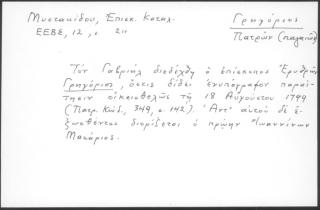 Μυστακίδου, Επισκ. Καταλ.
ΕΕΒΣ, 12, σ. 211
Γρηγόριος
Πατρῶν (παλαιῶν)
Τὸν Γαβριὴλ διεδέχθη ὁ ἐπίσκοπος Ἐρυθρῶν
Γρηγόριος, ὅστις δίδει ἐνυπόγραφον παραί-
τησιν οἰκειοθελῶς τῇ 18 Αὐγούστου 1799
(Πατρ. Κώδ., 349, σ. 142). Ἀντ' αὐτοῦ δὲ ἐ-
ξωσθέντος διορίζεται ὁ πρῴην Ἰωαννίνων
Μακάριος.